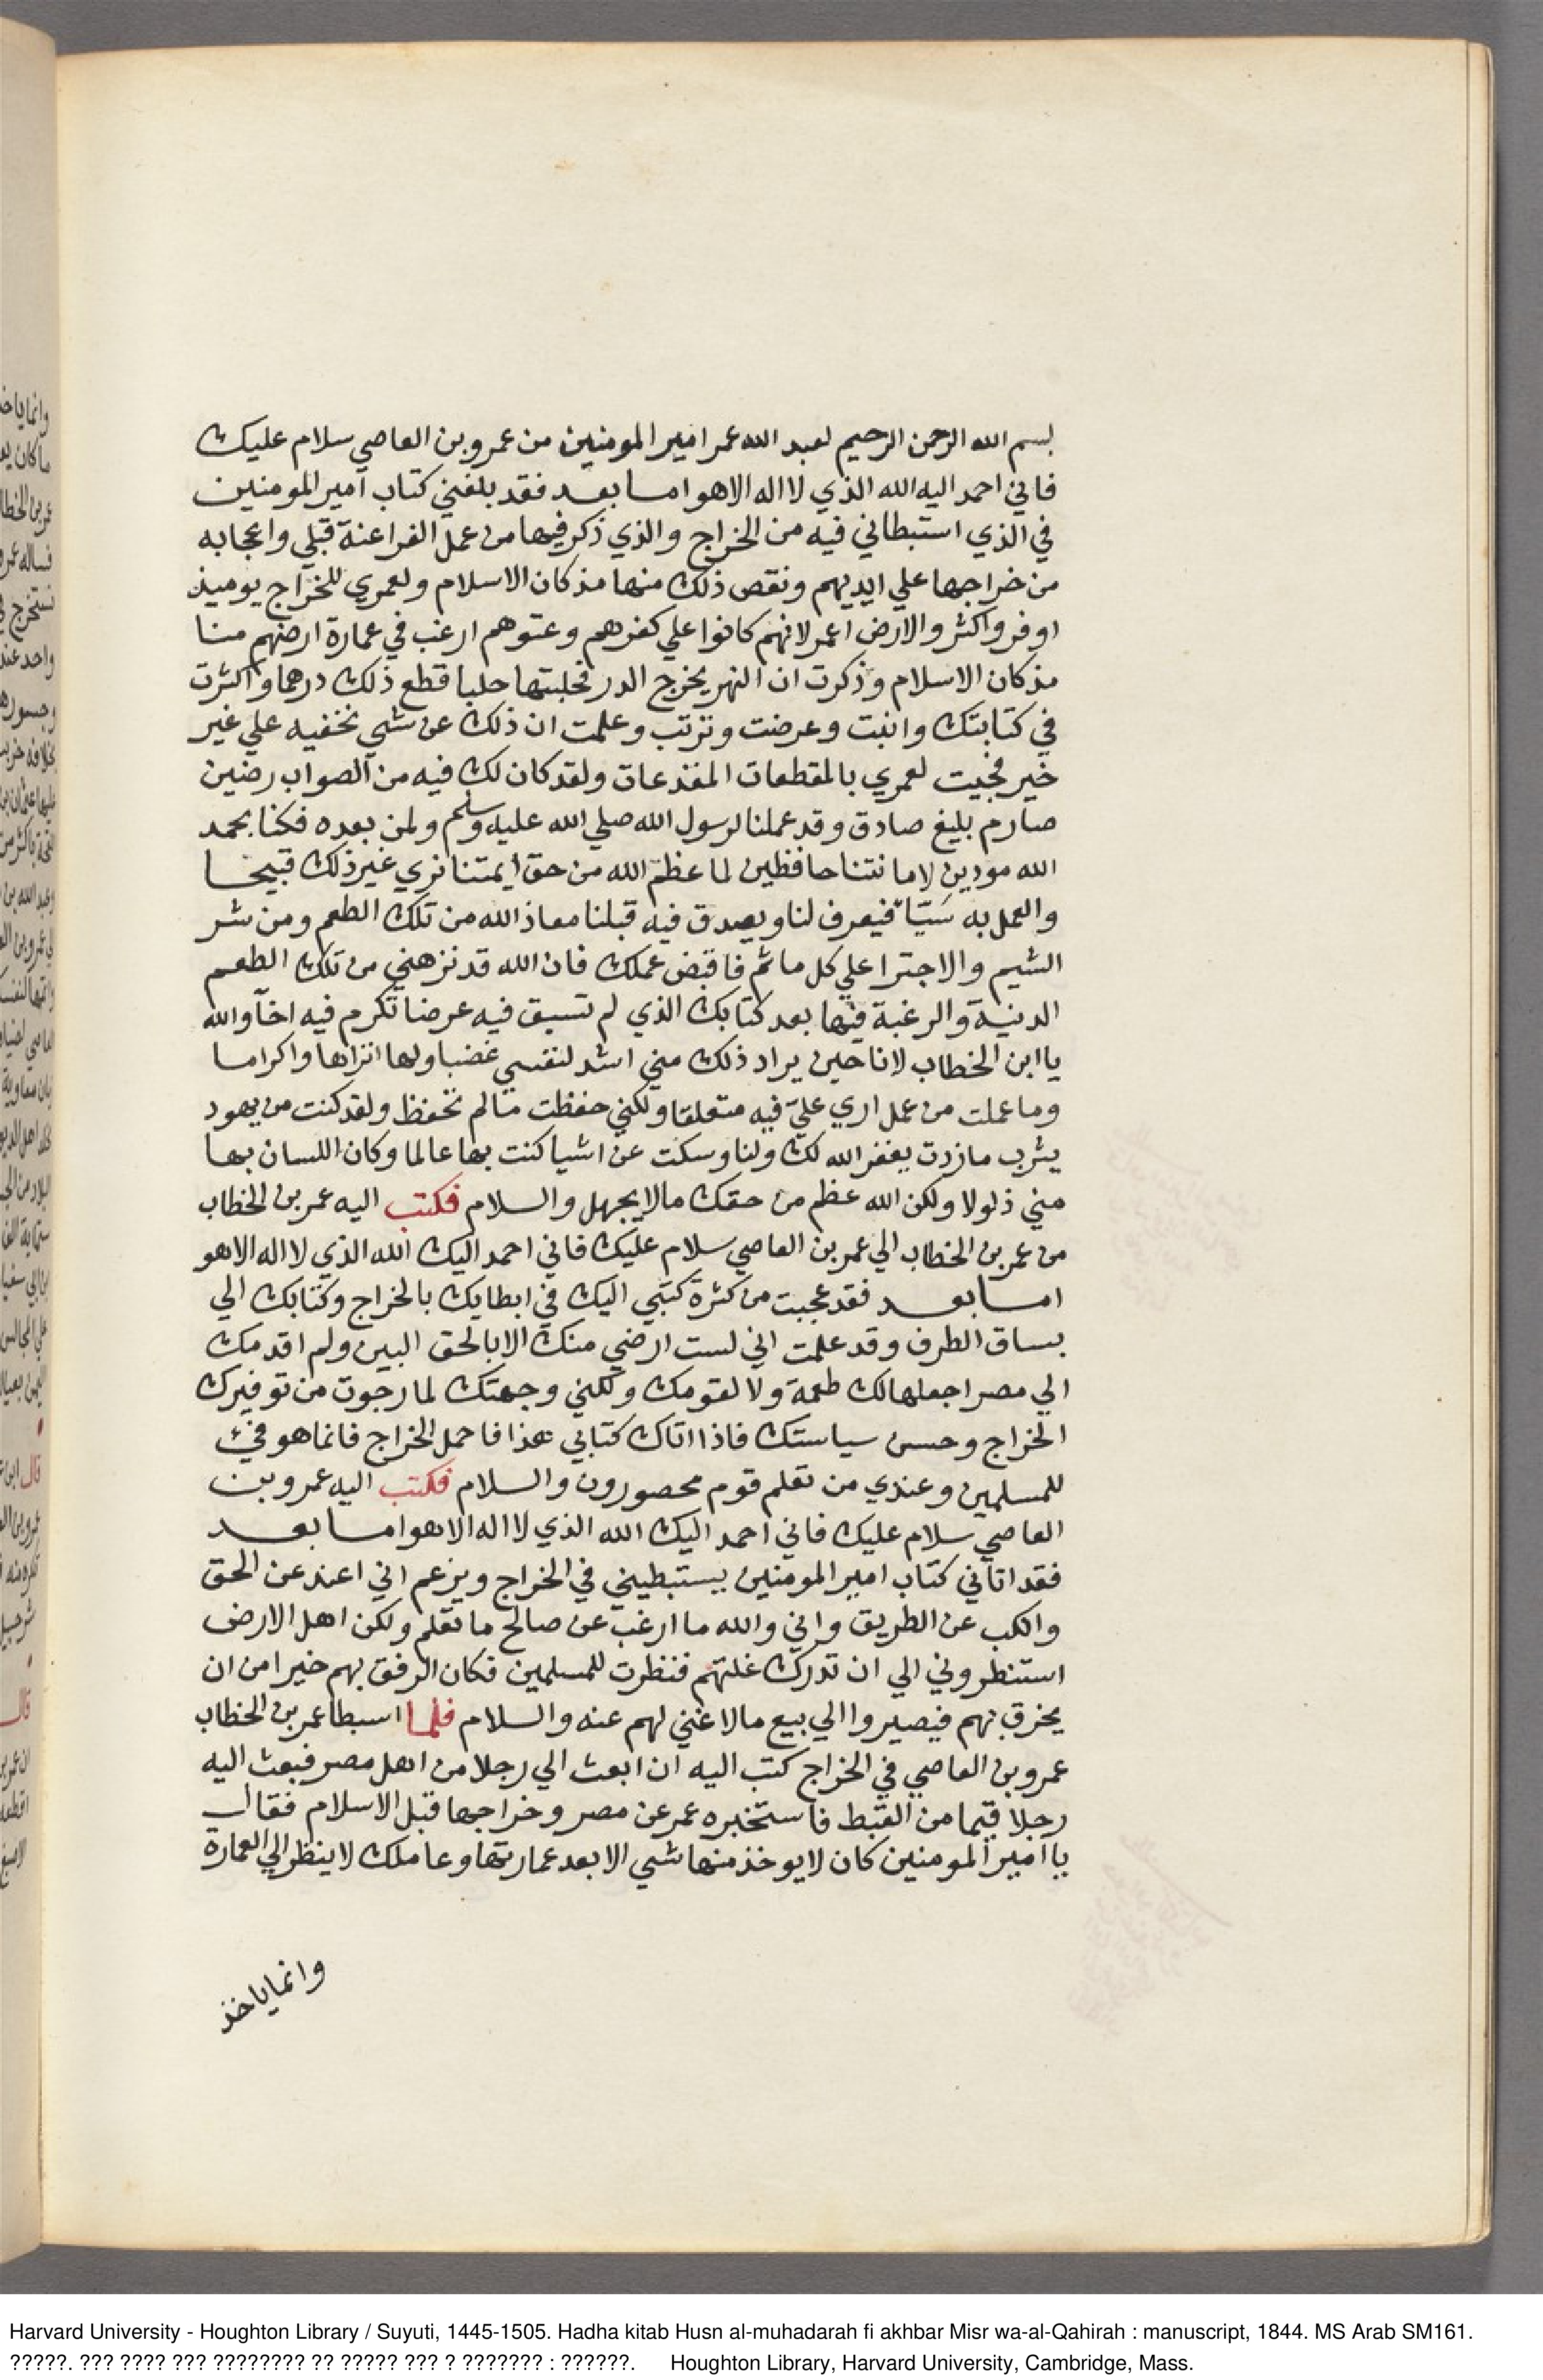 بسم الله الرحمن الرحيم لعبد الله عمر امير المومنين من عمرو بن العاصي سلام عليك
فاني احمد اليه الله الذي لا اله الا هو اما بعد فقد بلغني كتاب امير المومنين
في الذي استبطاني فيه من الخراج والذي ذكر فيها من عمل الفراعنة قبلي واعجابه
من خراجها علي ايديهم ونقص ذلك منها مذ كان الاسلام ولعمري للخراج يوميذ
اوفر واكثر والارض اعمر لانهم كانوا علي كفرهم وعتوهم ارغب في عمارة ارضهم منا
مذ كان الاسلام وذكرت ان النهر يخرج الدر فحلبتها حلبا قطع ذلك درهما واكثرت
في كتابتك وانبت وعرضت وتربت وعلمت ان ذلك عن شي نخفيه علي غير
خير فجيت لعمري بالمقطعات المفذعات ولقد كان لك فيه من الصواب رضين
صارم بليغ صادق وقد عملنا لرسول الله صلي الله عليه وسلم ولمن بعده فكنا بحمد
الله مودين لامانتنا حافظين لما عظم الله من حق ايمتنا نري غير ذلك قبيحا
والعمل به سَيّاً فيعرف لنا ويصدق فيه قبلنا معاذ الله من تلك الطعم ومن شر
الشيم والاجترا علي كل ماثم فاقبض عملك فان الله قد نزهني من تلك الطعم
الدنية والرغبة فيها بعد كتابك الذي لم تسبق فيه عرضا تكرم فيه اخا والله
يا ابن الخطاب لانا حين يراد ذلك مني اشد لنفسي غضبا ولها انزاها واكراما
وما عملت من عمل اري عليّ فيه متعلقا ولكني حفظت مالم تحفظ ولقد كنت من يهود
يثرب ما زدت يغفر الله لك ولنا وسكت عن اشيا كنت بها عالما وكان اللسان بها
مني ذلولا ولكن الله عظم من حقك مالا يجهل والسلام فكتب اليه عمر بن الخطاب
من عمر بن الخطاب الي عمر بن العاصي سلام عليك فاني احمد اليك الله الذي لا اله الا هو
اما بعد فقد عجبت من كثرة كتبي اليك في ابطايك بالخراج وكتابك الي
بساق الطرف وقد علمت اني لست ارضي منك الا بالحق البين ولم اقدمك
الي مصر اجعلها لك طعمة ولا لقومك ولكني وجهتك لما رجوت من توفيرك
الخراج وحسن سياستك فاذا اتاك كتابي هذا فاحمل الخراج فانما هو فيء
للمسلمين وعندي من تعلم قوم محصورون والسلام فكتب اليه عمرو بن
العاصي سلام عليك فاني احمد اليك الله الذي لا اله الا هو اما بعد
فقد اتاني كتاب امير المومنين يستبطيني في الخراج ويزعم اني اعند عن الحق
وانكب عن الطريق واني والله ما ارغب عن صالح ما تعلم ولكن اهل الارض
استنظروني الي ان تدرك غلتهم فنظرت للمسلمين فكان الرفق بهم خيرا من ان
يخرق بهم فيصيروا الي بيع مالا غني لهم عنه والسلام فلما اسبطا عمر بن الخطاب
عمرو بن العاصي في الخراج كتب اليه ان ابعث الي رجلا من اهل مصر فبعث اليه
رجلا قيما من القبط فاستخبره عمر عن مصر وخراجها قبل الاسلام فقال
يا امير المومنين كان لا يوخذ منها شي الا بعد عمارتها وعاملك لا ينظر الي العمارة
وانما ياخذ
Harvard University - Houghton Library / Suyuti, 1445-1505. Hadha kitab Husn al-muhadarah fi akhbar Misr wa-al-Qahirah : manuscript, 1844. MS Arab SM161.
?????. ??? ???? ??? ???????? ?? ????? ??? ? ??????? : ??????. Houghton Library, Harvard University, Cambridge, Mass.